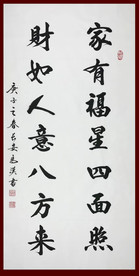 家有福星四面照
財如人意八方来
庚子之春長安志漢書